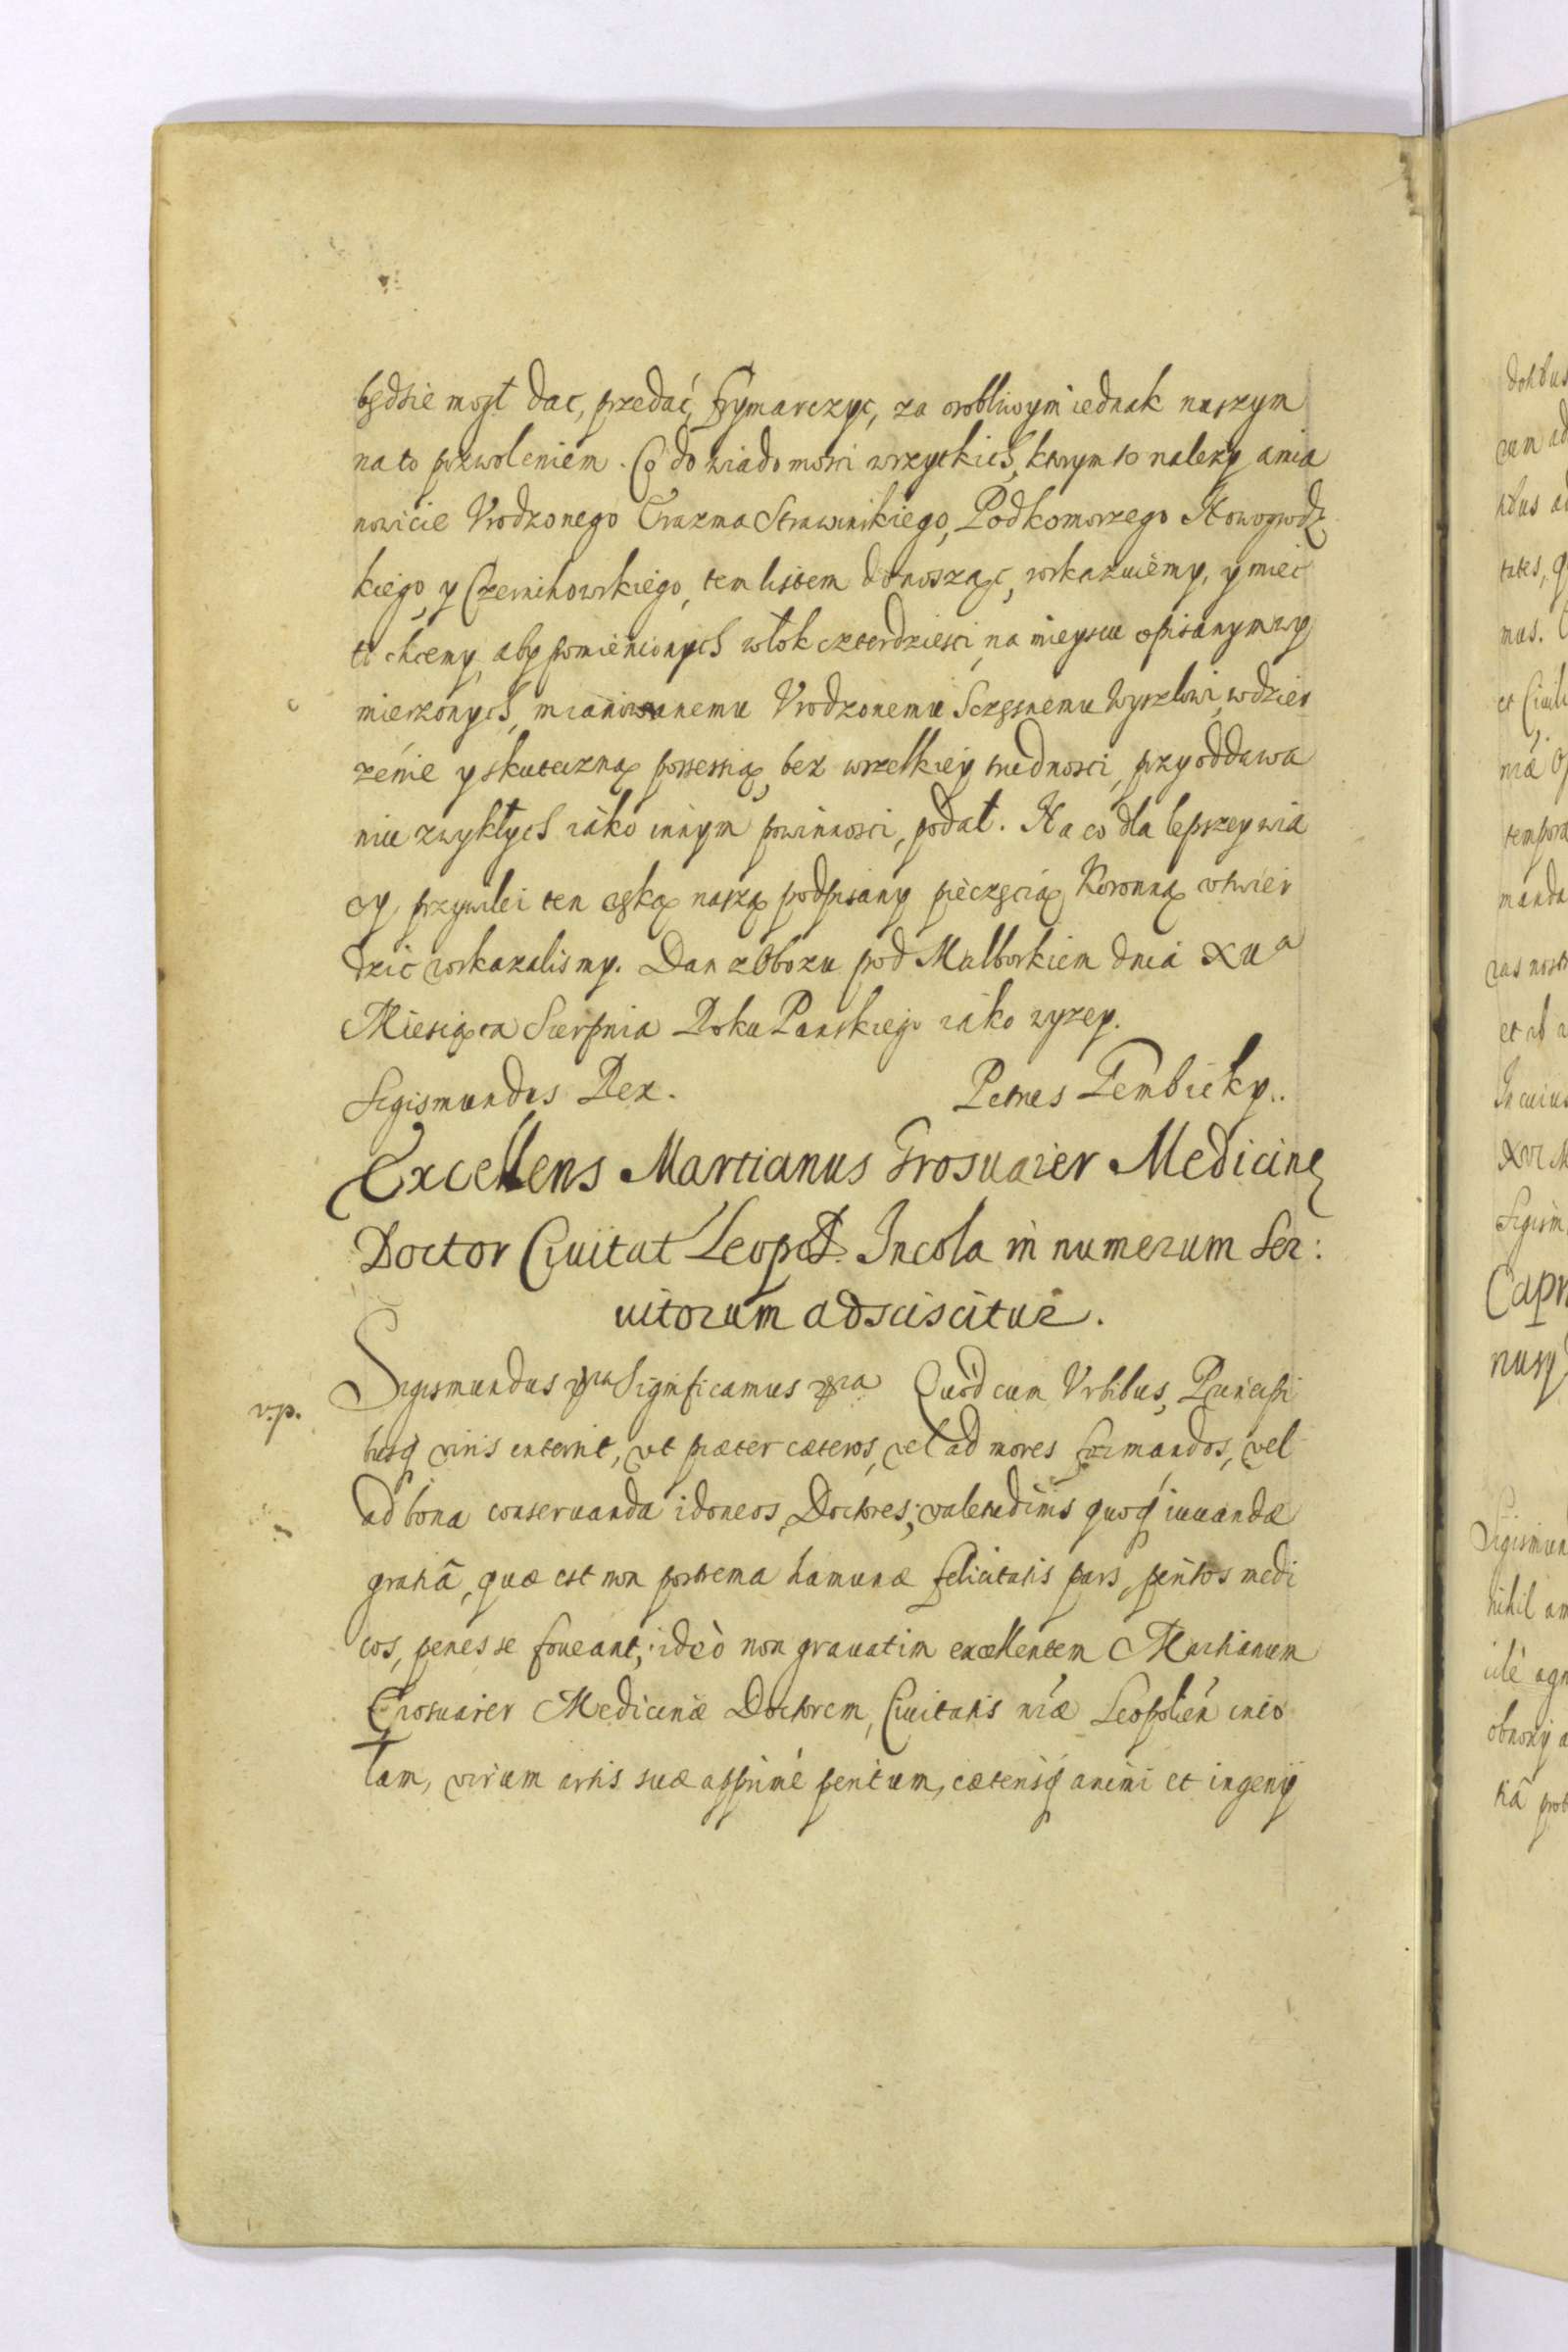 będzie mogł dac, przedać, frymarczyc, za osobliwym iednak naszym
na to pozwoleniem. Co do wiadomosci wszytkich, ktorym to nalezy a mia
nowicie Vrodzonego Erazma Strawinskiego, Podkomorzego Nowogrodz
kiego, y Czernihowskiego, tem listem donosząc, roskazuiemy, y miec
to chcemy, aby pomienionych włok czterdziesci, na mieyscu opisanym wy
mierzonych, mianowanemu Vrodzonemu Sczęsnemu Wyszlowi, w dzier
zenie y skuteczną possessią, bez wszelkiey trudnosci, przy oddawa
niu zwykłych iako innym powinnosci, podał. Na co dla lepszey wia
ry, przywilei ten ręką naszą podpisany pieczęcią Koronną vtwier
dzic roskazalismy. Dan z Obozu pod Malborkiem dnia XVa
Miesiąca Sierpnia Roku Panskiego iako wyzey.
Sigismundus Rex. Petrus Gembicky.
Excellens Martianus Grosuaier Medicinę
Doctor Ciuitat Leopol. Incola in numerum Ser:
uitorum adsciscitur.
v.p. Sigismundus &ra Significamus &ra Quòd cum Vrbibus, Principi
busq viris intersit, vt præter cæteros, vel ad mores formandos, vel
ad bona conseruanda idoneos, Doctores, valetudinis quoq iuuandæ
gratiâ, quæ est non postrema humanæ felicitatis pars, peritos medi
cos, penes se foueant; ideò non grauatim excellentem Martianum
Grosuaier Medicinæ Doctorem, Ciuitatis nræ Leopolien inco
lam, virum artis suæ apprimè peritum, cæterisq animi et ingenij